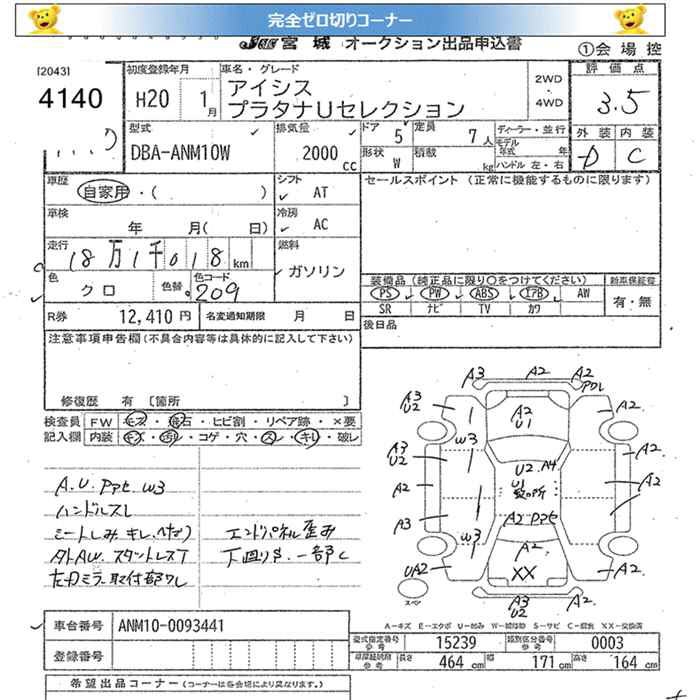 完全ゼロ切りコーナー
宮城 オークション出品申込書
①会場控
[2043]
4140
初度登録年月
H20 1月
車名・グレード
アイシス
プラタナUセレクション
2WD
・
4WD
評価点
3.5
型式
DBA-ANM10W
排気量
2000 CC
ドア 5
定員 7人
形状 W
積載 kg
ディーラー・並行
モデル年式 年
ハンドル 左・右
外装 内装
D C
車歴
自家用・( )
シフト
AT
セールスポイント (正常に機能するものに限ります)
車検
年 月( 日)
冷房
AC
走行
18万1千018km
燃料
ガソリン
色
クロ
色替
色コード
209
装備品 (純正品に限り○をつけてください)
新車保証書
PS PW ABS エアB AW
SR ナビ TV カワ
有・無
R券 12,410円
名変通知期限 月 日
後日品
注意事項申告欄(不具合内容等は具体的に記入して下さい)
修復歴 有 [箇所 ]
検査員 FW キズ・飛石・ヒビ割・リペア跡・×要
記入欄 内装 キズ・汚れ・コゲ・穴・スレ・キレ・破レ
A.U.アァセ W3
ハンドルスレ
シートしみ キレ.へたり
外AW.スタットレスT
左Dミラー取付部ワレ
エンドパネル歪み
下回りS.一部C
A3 A2 A2
アワレ
A3
U2
A2
U1
A2
W3
A3
U2
U2 A4
A2
A2
U1
数ヶ所
A2
A3
A2アァセ
W3
A2
UA2
XX
A2
スペア
A3
U2
A-キズ E-エクボ U-凹み W-補修跡 S-サビ C-腐蝕 XX-交換済
車台番号 ANM10-0093441
登録番号
型式指定番号 15239 類別区分番号 0003
長さ 464 cm 幅 171 cm 高さ 164 cm
希望出品コーナー (コーナーは各会場により異なります。)